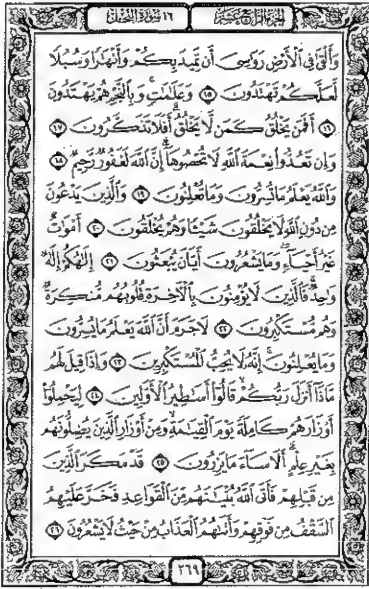 الجزء الرابع عشر ١٦ سورة النحل
وَأَلْقَىٰ فِي الْأَرْضِ رَوَاسِيَ أَن تَمِيدَ بِكُمْ وَأَنْهَارًا وَسُبُلًا
لَعَلَّكُمْ تَهْتَدُونَ ١٥ وَعَلَامَاتٍ ۚ وَبِالنَّجْمِ هُمْ يَهْتَدُونَ
١٦ أَفَمَن يَخْلُقُ كَمَن لَا يَخْلُقُ ۗ أَفَلَا تَذَكَّرُونَ ١٧
وَإِن تَعُدُّوا نِعْمَةَ اللَّهِ لَا تُحْصُوهَا ۗ إِنَّ اللَّهَ لَغَفُورٌ رَّحِيمٌ ١٨
وَاللَّهُ يَعْلَمُ مَا تُسِرُّونَ وَمَا تُعْلِنُونَ ١٩ وَالَّذِينَ يَدْعُونَ
مِن دُونِ اللَّهِ لَا يَخْلُقُونَ شَيْئًا وَهُمْ يُخْلَقُونَ ٢٠ أَمْوَاتٌ
غَيْرُ أَحْيَاءٍ ۖ وَمَا يَشْعُرُونَ أَيَّانَ يُبْعَثُونَ ٢١ إِلَٰهُكُمْ إِلَٰهٌ
وَاحِدٌ ۚ فَالَّذِينَ لَا يُؤْمِنُونَ بِالْآخِرَةِ قُلُوبُهُم مُّنكِرَةٌ
وَهُم مُّسْتَكْبِرُونَ ٢٢ لَا جَرَمَ أَنَّ اللَّهَ يَعْلَمُ مَا يُسِرُّونَ
وَمَا يُعْلِنُونَ ۚ إِنَّهُ لَا يُحِبُّ الْمُسْتَكْبِرِينَ ٢٣ وَإِذَا قِيلَ لَهُم
مَّاذَا أَنزَلَ رَبُّكُمْ ۙ قَالُوا أَسَاطِيرُ الْأَوَّلِينَ ٢٤ لِيَحْمِلُوا
أَوْزَارَهُمْ كَامِلَةً يَوْمَ الْقِيَامَةِ ۙ وَمِنْ أَوْزَارِ الَّذِينَ يُضِلُّونَهُم
بِغَيْرِ عِلْمٍ ۗ أَلَا سَاءَ مَا يَزِرُونَ ٢٥ قَدْ مَكَرَ الَّذِينَ
مِن قَبْلِهِمْ فَأَتَى اللَّهُ بُنْيَانَهُم مِّنَ الْقَوَاعِدِ فَخَرَّ عَلَيْهِمُ
السَّقْفُ مِن فَوْقِهِمْ وَأَتَاهُمُ الْعَذَابُ مِنْ حَيْثُ لَا يَشْعُرُونَ ٢٦
٢٦٩